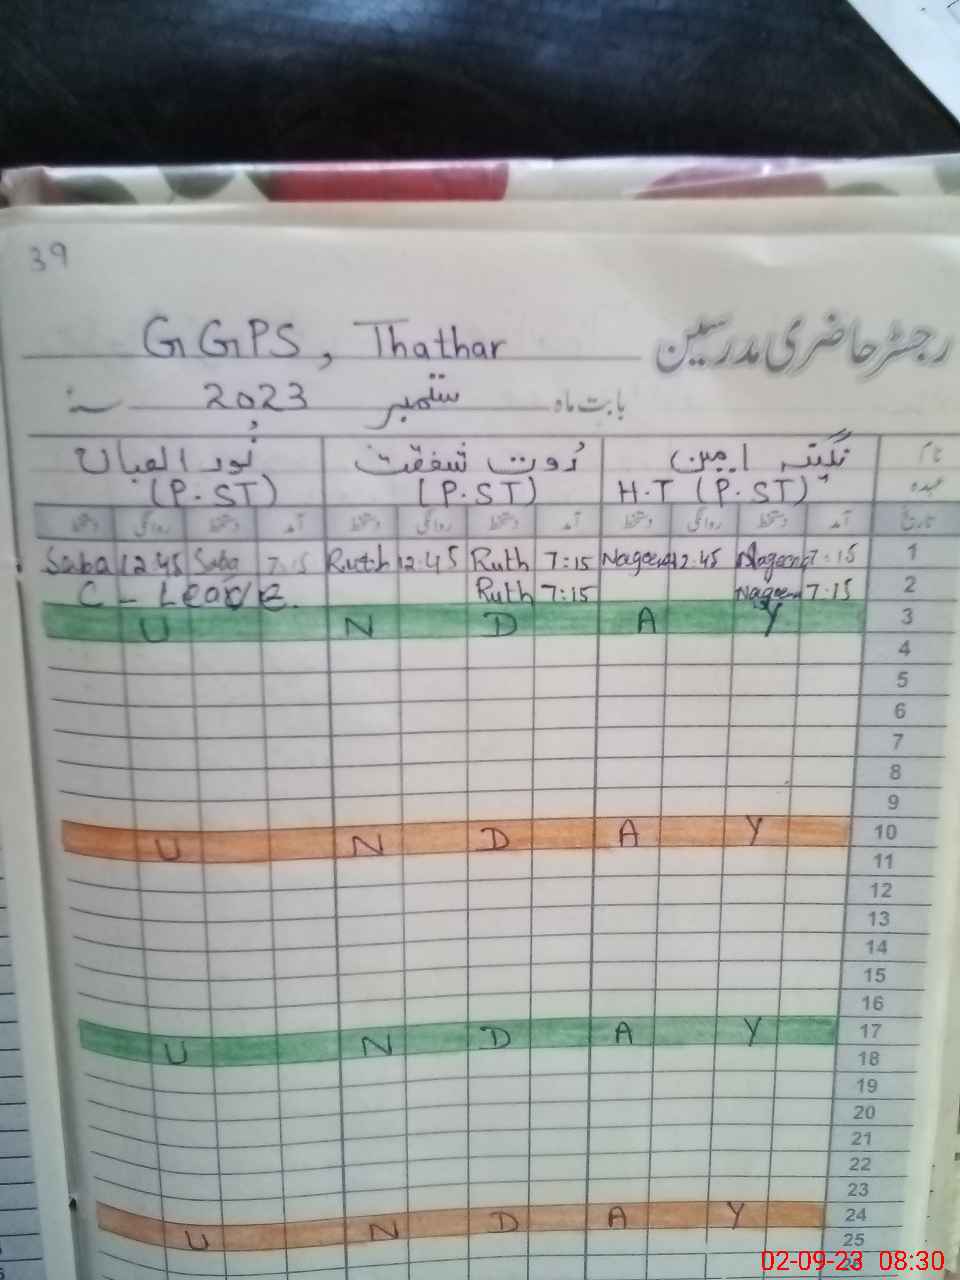 39
GGPS, Thathar رجسٹر حاضری مدرسین
بابت ماہ ستمبر 2023 سنہ
نام نگینہ ایمین رُوت شفقت نُور الصباح
عہدہ H.T (P.ST) (P.ST) (P.ST)
تاریخ آمد دستخط روانگی دستخط آمد دستخط روانگی دستخط آمد دستخط روانگی دستخط
Saba 12 45 Saba 7:15 Ruth 12:45 Ruth 7:15 Nageena 12:45 Nageena 7:15 1
C - Leave. Ruth 7:15 Nageena 7:15 2
U N D A Y 3
4
5
6
7
8
9
U N D A Y 10
11
12
13
14
15
16
U N D A Y 17
18
19
20
21
22
23
U N D A Y 24
25
26
02-09-23 08:30